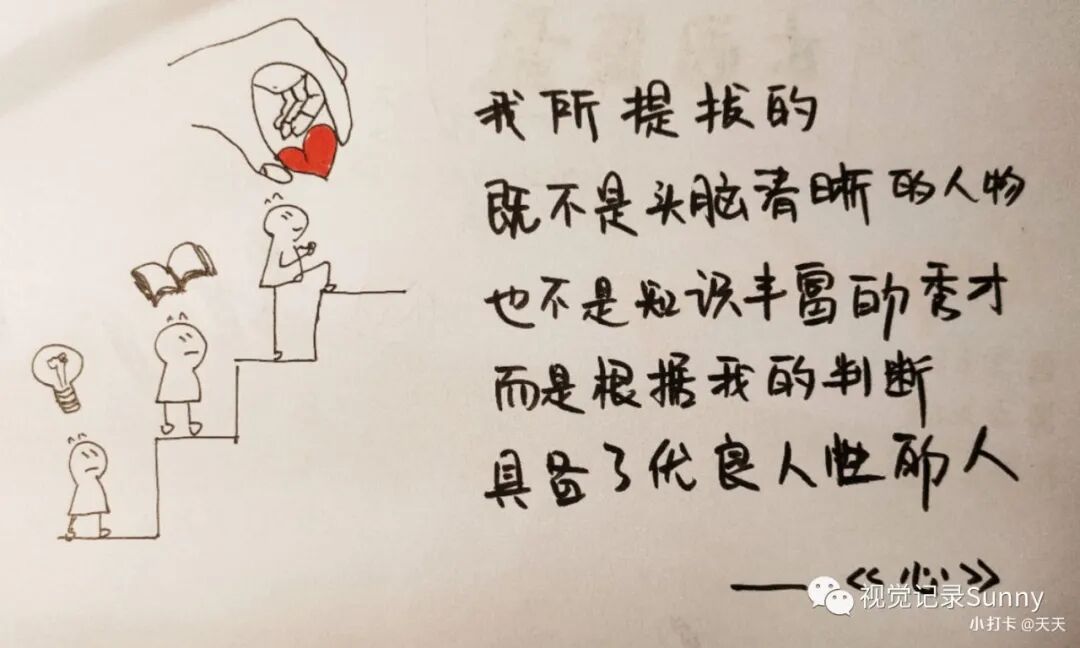 我所提拔的
既不是头脑清晰的人物
也不是知识丰富的秀才
而是根据我的判断
具备了优良人性的人
——《心》
视觉记录Sunny
小打卡 @天天